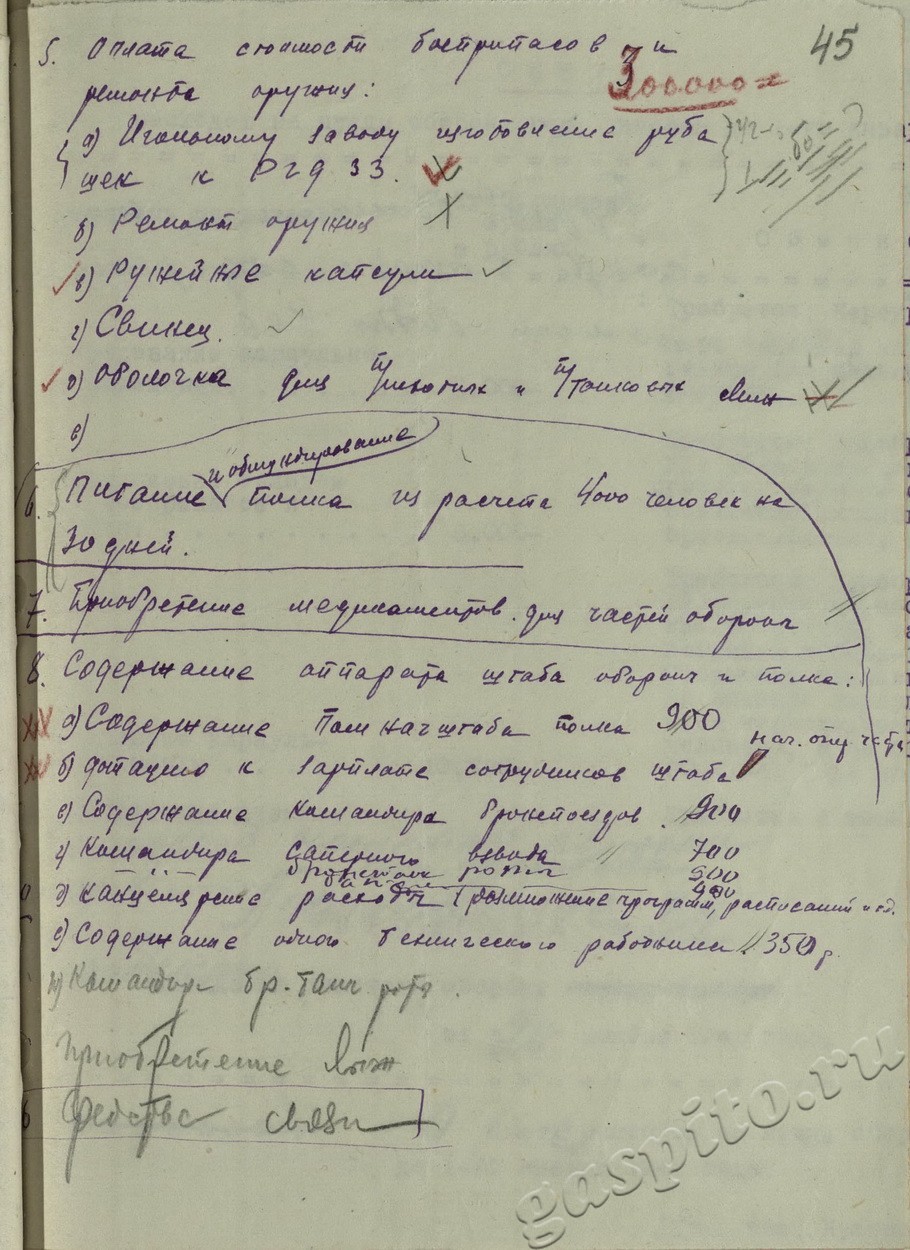 45
5. Оплата стоимости боеприпасов и
ремонта оружия: 300000=
а) Игольному заводу изготовление руба
шек к РГД 33.
б) Ремонт оружия
в) Ружейные капсули
г) Свинец.
д) Оболочка для п/пехотных и п/танковых мин
е)
и обмундирование
6. Питание полка из расчета 4000 человек на
30 дней.
7. Приобретение медикаментов для частей обороны
8. Содержание аппарата штаба обороны и полка:
а) Содержание Пом нач штаба полка 900
нач. опер. части
б) дотацию к зарплате сотрудников штаба
в) Содержание командира бронепоездов 900
г) Командира саперного взвода " 700
роты 500
д) канцелярские расходы (размножение программ, расписаний и т.д.
е) Содержание одного технического работника 350 р.
ж) Командир бр-танк роты
Приобретение лыж
Средства связи
gaspito.ru